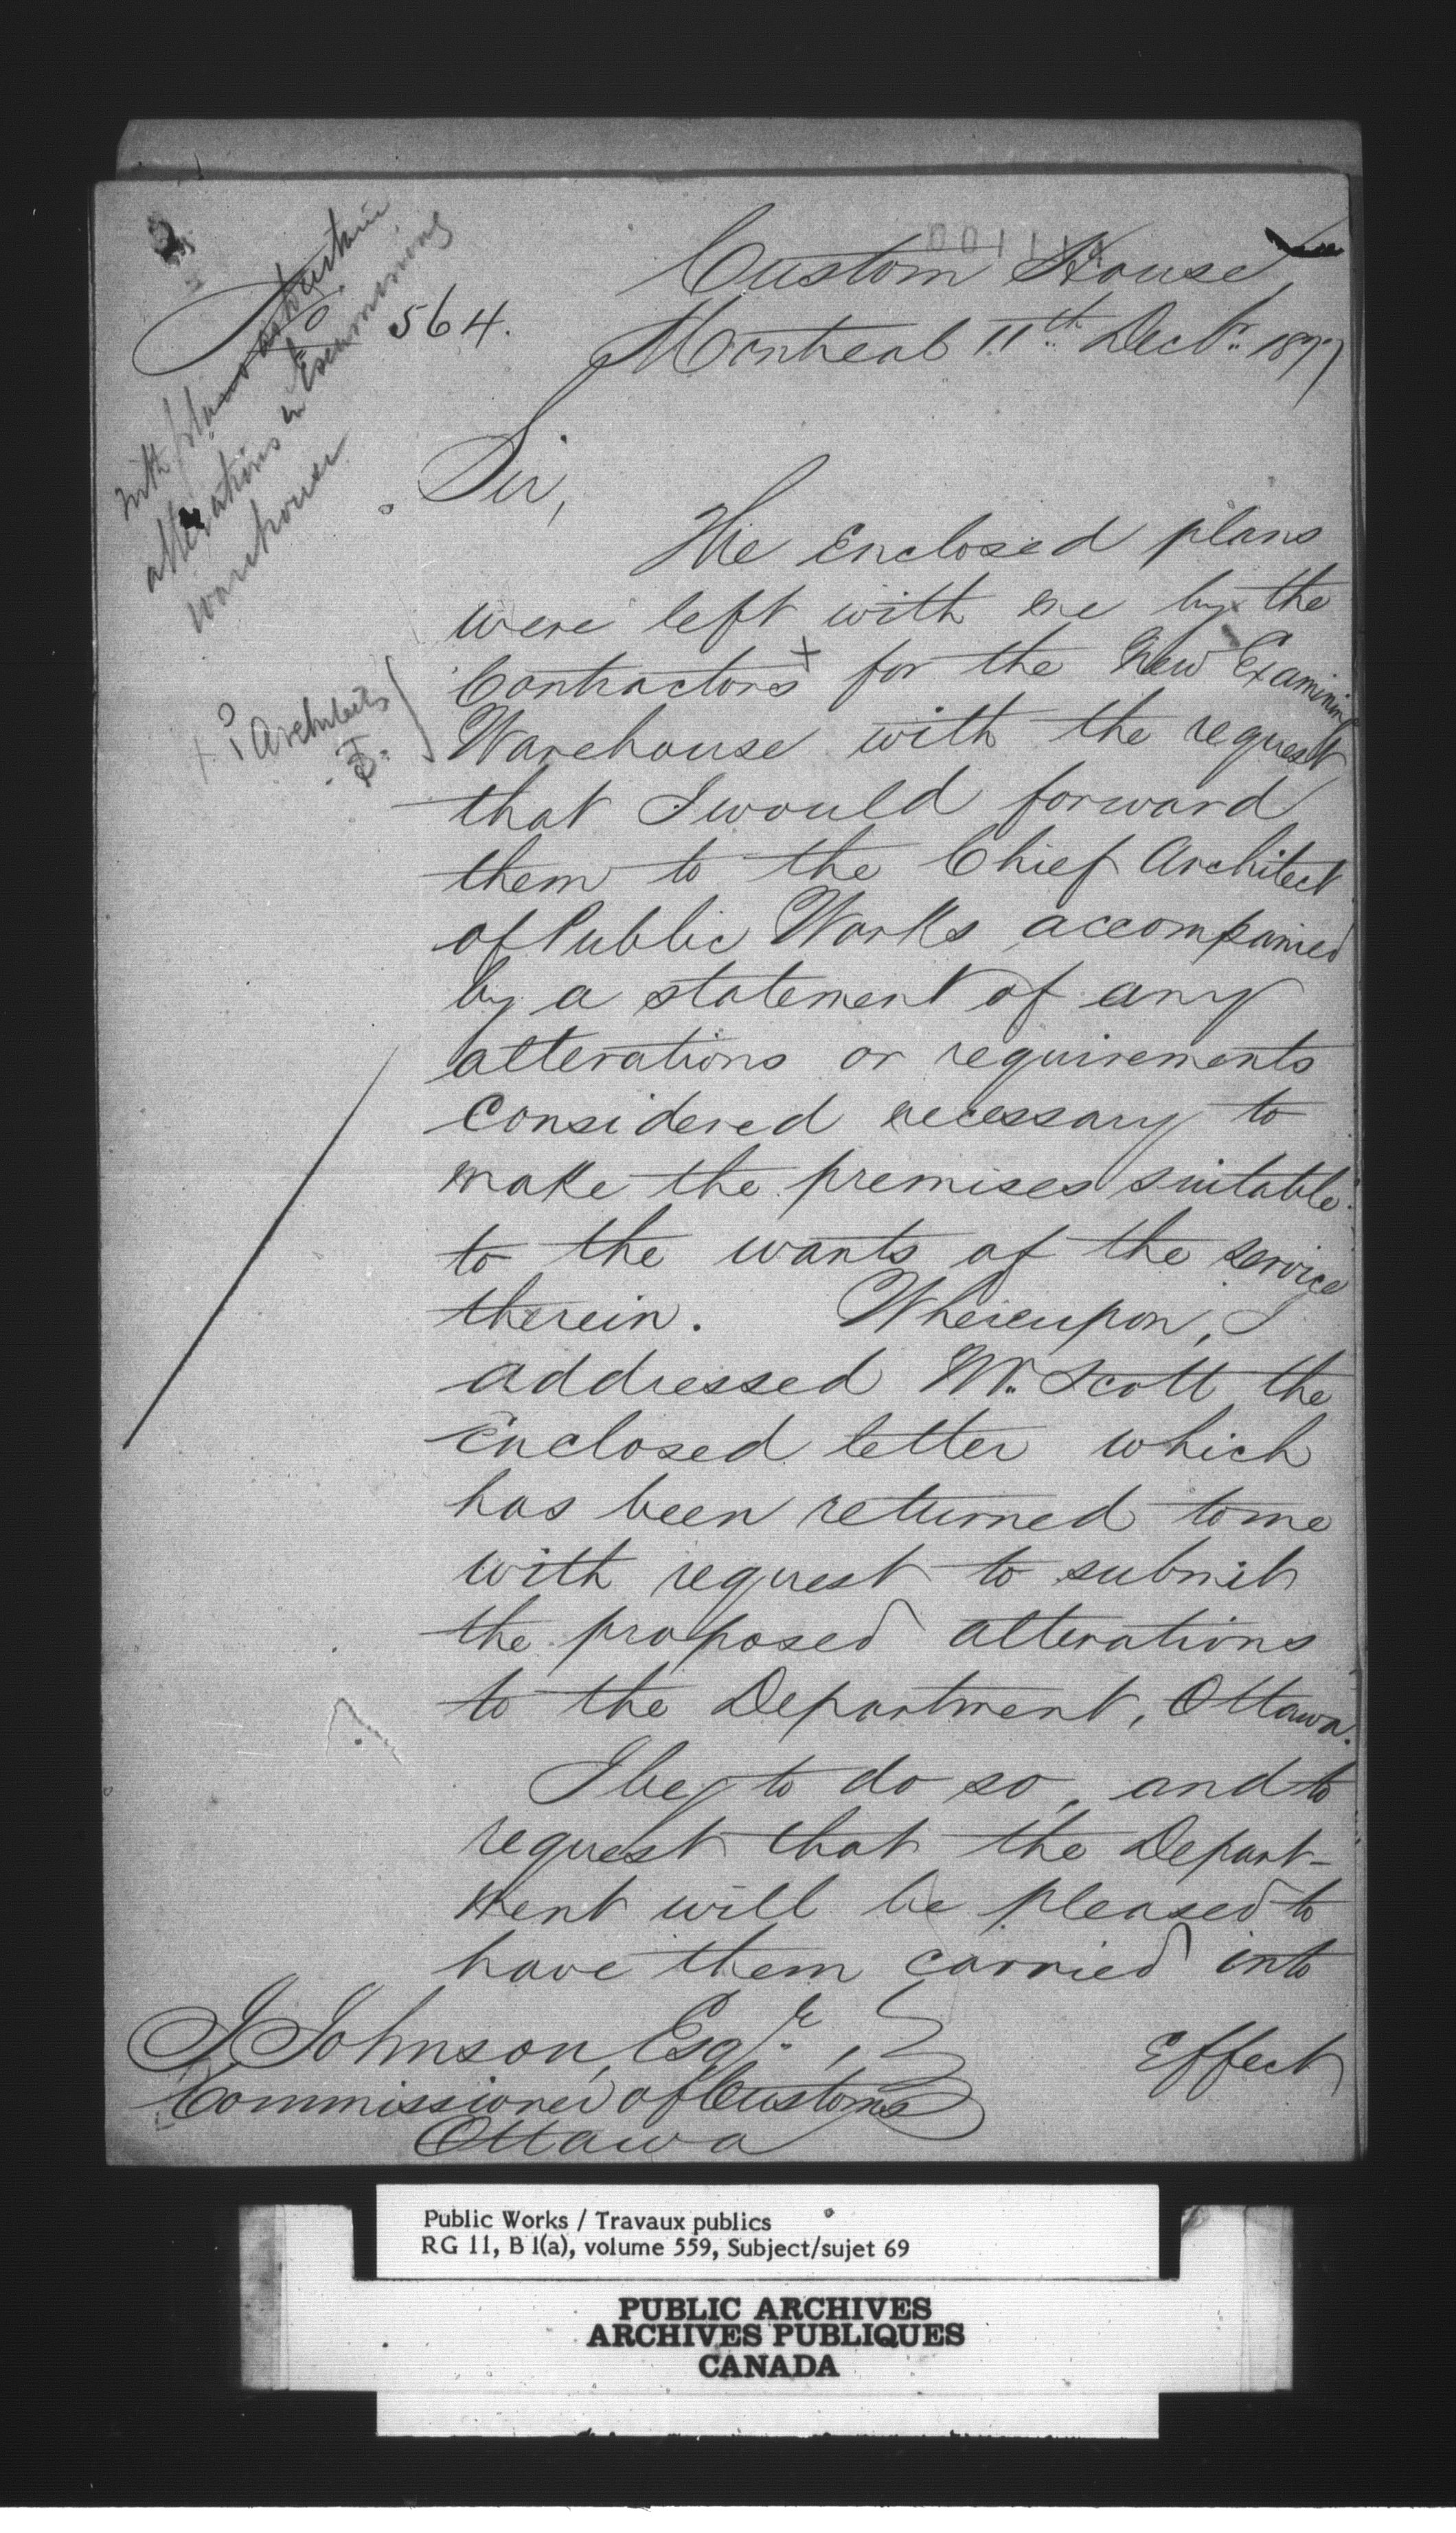 Custom House,
No 564. Montreal 11th Decbr 1877
with plans as to certain
alterations in Examining
warehouse
Sir,
The Enclosed plans
were left with me by the
Contractors + for the New Examining
+ ? Architects
Warehouse with the request
that I would forward
them to the Chief Architect
of Public Works accompanied
by a statement of any
alterations or requirements
Considered necessary to
make the premises suitable
to the wants of the service
therein. Whereupon, I
addressed Mr. Scott the
Enclosed letter which
has been returned to me
with request to submit
the proposed alterations
to the Department, Ottawa.
I beg to do so, and to
request that the Depart-
ment will be pleased to
have them carried into
Effect
J Johnson, Esqr,
Commissioner of Customs
Ottawa
Public Works / Travaux publics
RG 11, B 1(a), volume 559, Subject/sujet 69
PUBLIC ARCHIVES
ARCHIVES PUBLIQUES
CANADA